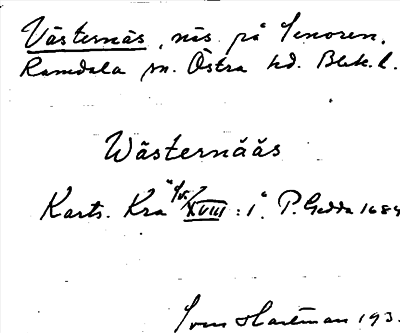 Västernäs, näs på Senoren,
Ramdala sn. Östra hd. Blek. l.
Wästernääs
Karts. Kra XVIII : 1. P. Gedda 1684
Sven Hartman 193